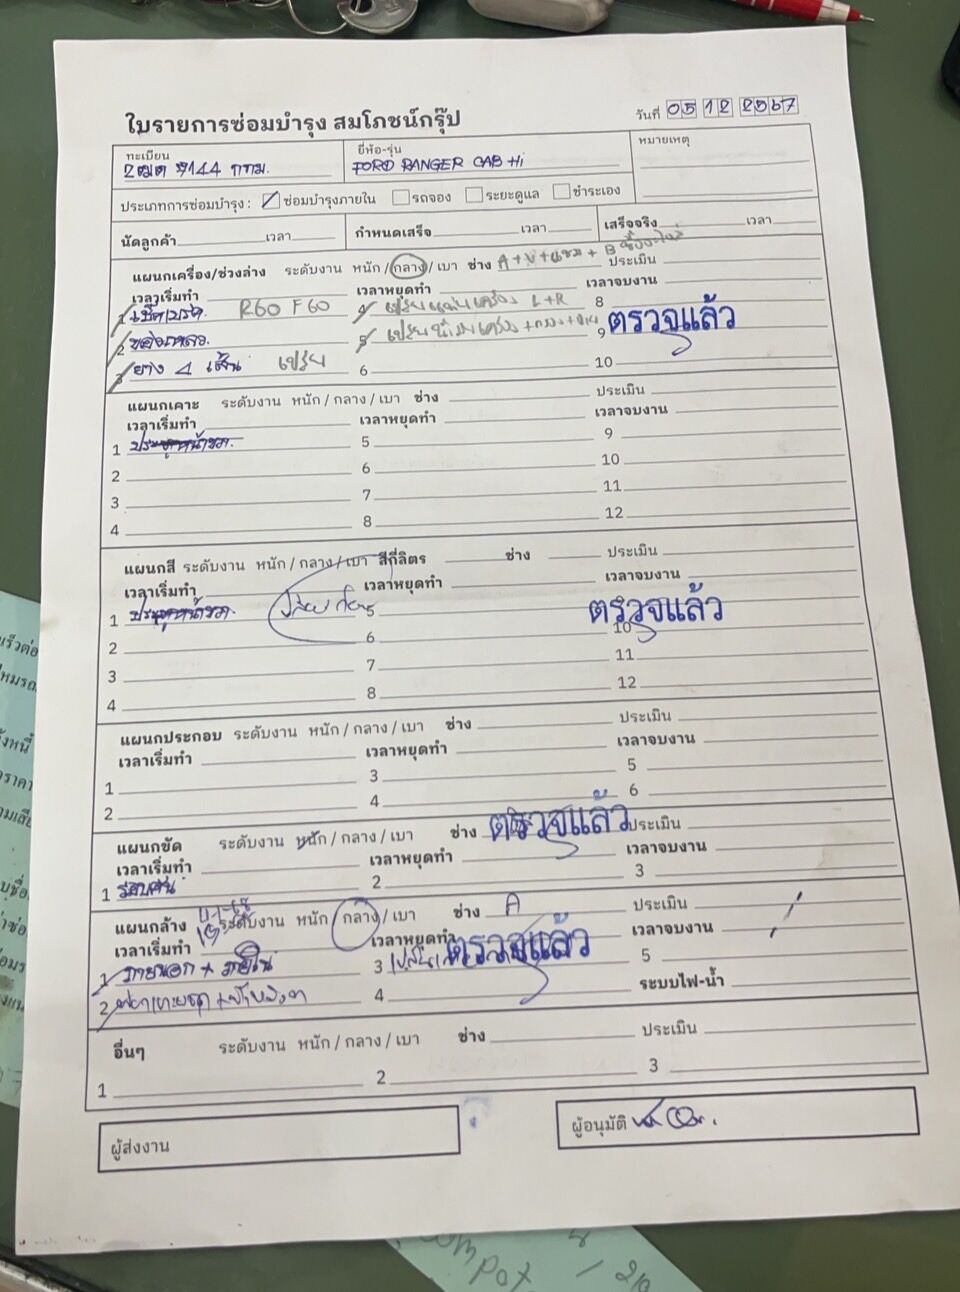 ใบรายการซ่อมบำรุง สมโภชน์กรุ๊ป
วันที่ 05 12 2567
ทะเบียน
ยี่ห้อ-รุ่น
FORD RANGER CAB Hi
หมายเหตุ
ประเภทการซ่อมบำรุง : ซ่อมบำรุงภายใน รถจอง ระยะดูแล ชำระเอง
นัดลูกค้า เวลา กำหนดเสร็จ เวลา เสร็จจริง เวลา
แผนกเครื่อง/ช่วงล่าง ระดับงาน หนัก / กลาง / เบา ช่าง ประเมิน
เวลาเริ่มทำ เวลาหยุดทำ เวลาจบงาน
1 เช็คเบรค. R60 F60 4 L+R 8
2 5 9 ตรวจแล้ว
3 ยาง 4 เส้น 6 10
แผนกเคาะ ระดับงาน หนัก / กลาง / เบา ช่าง ประเมิน
เวลาเริ่มทำ เวลาหยุดทำ เวลาจบงาน
1 ประตูหน้าขวา. 5 9
2 6 10
3 7 11
4 8 12
แผนกสี ระดับงาน หนัก / กลาง / เบา สีกี่ลิตร ช่าง ประเมิน
เวลาเริ่มทำ เวลาหยุดทำ เวลาจบงาน
1 ประตูหน้าขวา. 5 ตรวจแล้ว
2 6 10
3 7 11
4 8 12
แผนกประกอบ ระดับงาน หนัก / กลาง / เบา ช่าง ประเมิน
เวลาเริ่มทำ เวลาหยุดทำ เวลาจบงาน
1 3 5
2 4 6
แผนกขัด ระดับงาน หนัก / กลาง / เบา ช่าง ตรวจแล้ว ประเมิน
เวลาเริ่มทำ เวลาหยุดทำ เวลาจบงาน
1 รอบคัน 2 3
แผนกล้าง ระดับงาน หนัก / กลาง / เบา ช่าง A ประเมิน
เวลาเริ่มทำ เวลาหยุดทำ ตรวจแล้ว เวลาจบงาน
1 ภายนอก + ภายใน 3 5
2 4 ระบบไฟ-น้ำ
อื่นๆ ระดับงาน หนัก / กลาง / เบา ช่าง ประเมิน
1 2 3
ผู้ส่งงาน
ผู้อนุมัติ